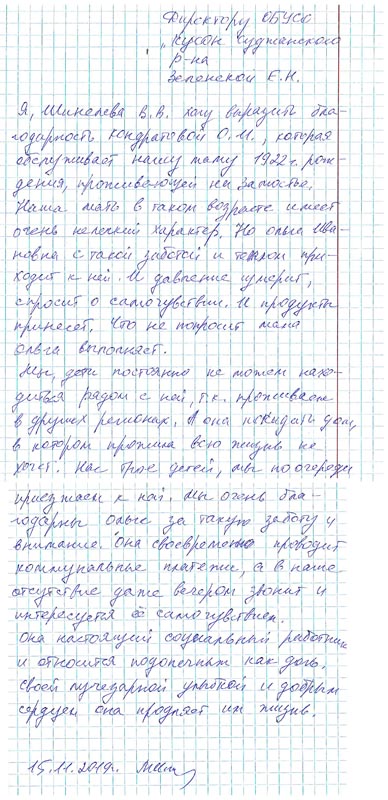 Директору ОБУСО
"КЦСОН Суджанского
р-на
Зеленской Е.Н.
Я, Шинелева В.В. хочу выразить бла-
годарность Кондратовой О.И., которая
обслуживает нашу маму 1922 г. рож-
дения, проживающей на Замостье.
Наша мать в таком возрасте имеет
очень нелегкий характер. Но Ольга Ива-
новна с такой заботой и теплом при-
ходит к ней. И давление измерит,
спросит о самочувствии. И продукты
принесет. Что не попросит мама
Ольга выполняет.
Мы, дети постоянно не можем нахо-
диться рядом с ней, т.к. проживаем
в других регионах. А она покидать дом,
в котором прожила всю жизнь не
хочет. Нас трое детей, мы по очереди
приезжаем к ней. Мы очень бла-
годарны Ольге за такую заботу и
внимание. Она своевременно проводит
коммунальные платежи, а в наше
отсутствие даже вечером звонит и
интересуется её самочувствием.
Она настоящий социальный работник
и относится подопечным как дочь.
Своей лучезарной улыбкой и добрым
сердцем она продляет им жизнь.
15.11.2019г.